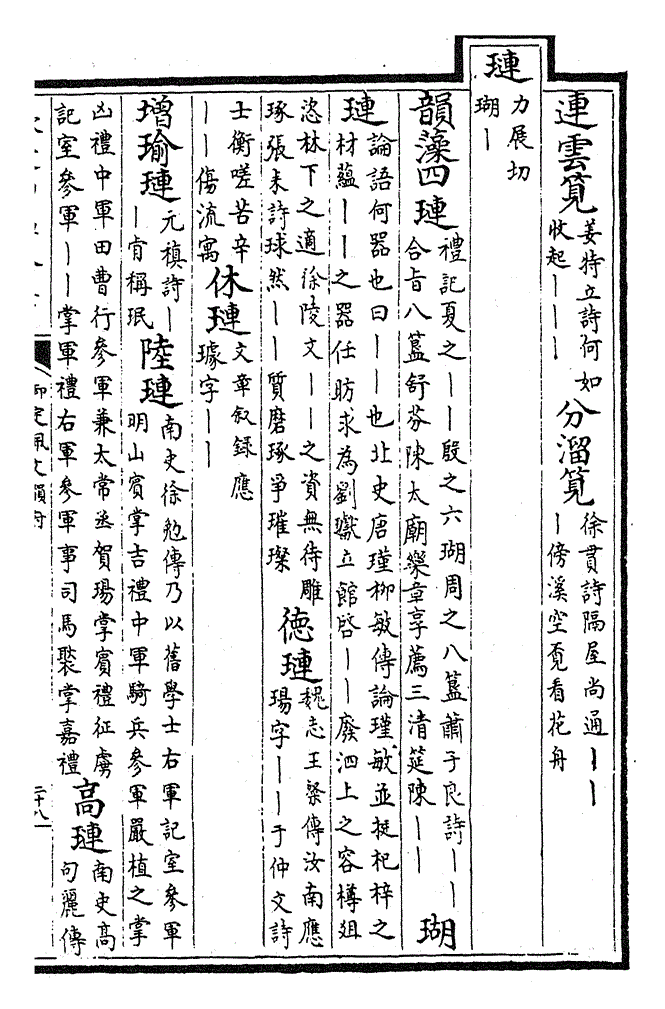 連雲筧姜特立詩何如收起｜｜｜分溜筧徐貫詩隔屋尚通｜｜｜傍溪空覓看花舟
璉力展切瑚｜
韻藻四璉禮記夏之｜｜殷之六瑚周之八簋蕭子良詩｜｜合旨八簋舒芬陳太廟樂章享薦三清筵陳｜｜瑚
璉論語何器也曰｜｜也北史唐瑾柳敏傳論瑾敏並挺杞梓之材蘊｜｜之器任昉求為劉瓛立館啓｜｜廢泗上之容樽俎
恣林下之適徐陵文｜｜之資無待雕琢張耒詩球然｜｜質磨琢爭璀璨德璉魏志王粲傳汝南應瑒字｜｜于仲文詩
士衡嗟苦辛｜｜傷流寓休璉文章敘録應璩字｜｜
增瑜璉元稹詩｜｜肯稱珉陸璉南史徐勉傳乃以舊學士右軍記室參軍明山賓掌吉禮中軍騎兵參軍嚴植之掌
凶禮中軍田曹行參軍兼太常丞賀瑒掌賓禮征虜記室參軍｜｜掌軍禮右軍參軍事司馬褧掌嘉禮高璉南史高句麗傳
御定佩文韻府
二十八